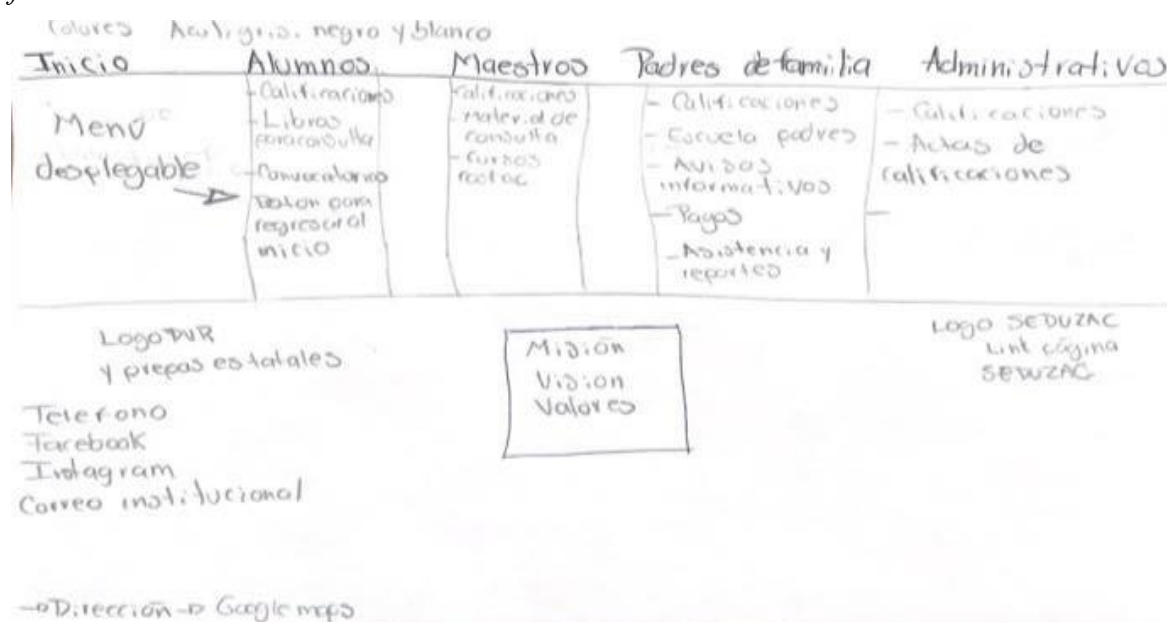 Colores Azul, gris, negro y blanco
Inicio
Menú
desplegable
Alumnos
-Calificaciones
-Libros
para consulta
-Convocatorias
Boton para
regresar al
inicio
Maestros
Calificaciones
-material de
consulta
-Cursos
Padres de familia
- Calificaciones
- Escuela padres
- Avisos
informativos
- Pagos
- Asistencia y
reportes
Administrativos
- Calificaciones
- Actas de
calificaciones
-
Logo
y prepas estatales
Misión
Visión
Valores
Logo SEDUZAC
Link página
SEDUZAC
Telefono
Facebook
Instagram
Correo institucional
→Dirección→ Google maps